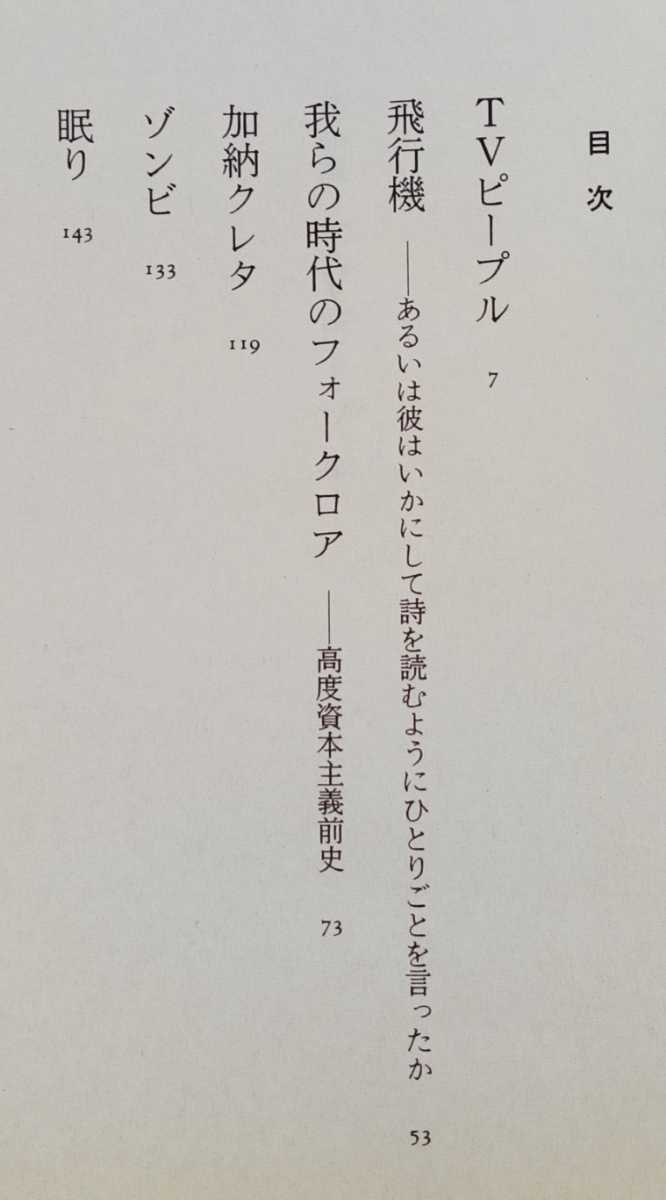 目次
TVピープル 7
飛行機 ——あるいは彼はいかにして詩を読むようにひとりごとを言ったか 53
我らの時代のフォークロア ——高度資本主義前史 73
加納クレタ 119
ゾンビ 133
眠り 143